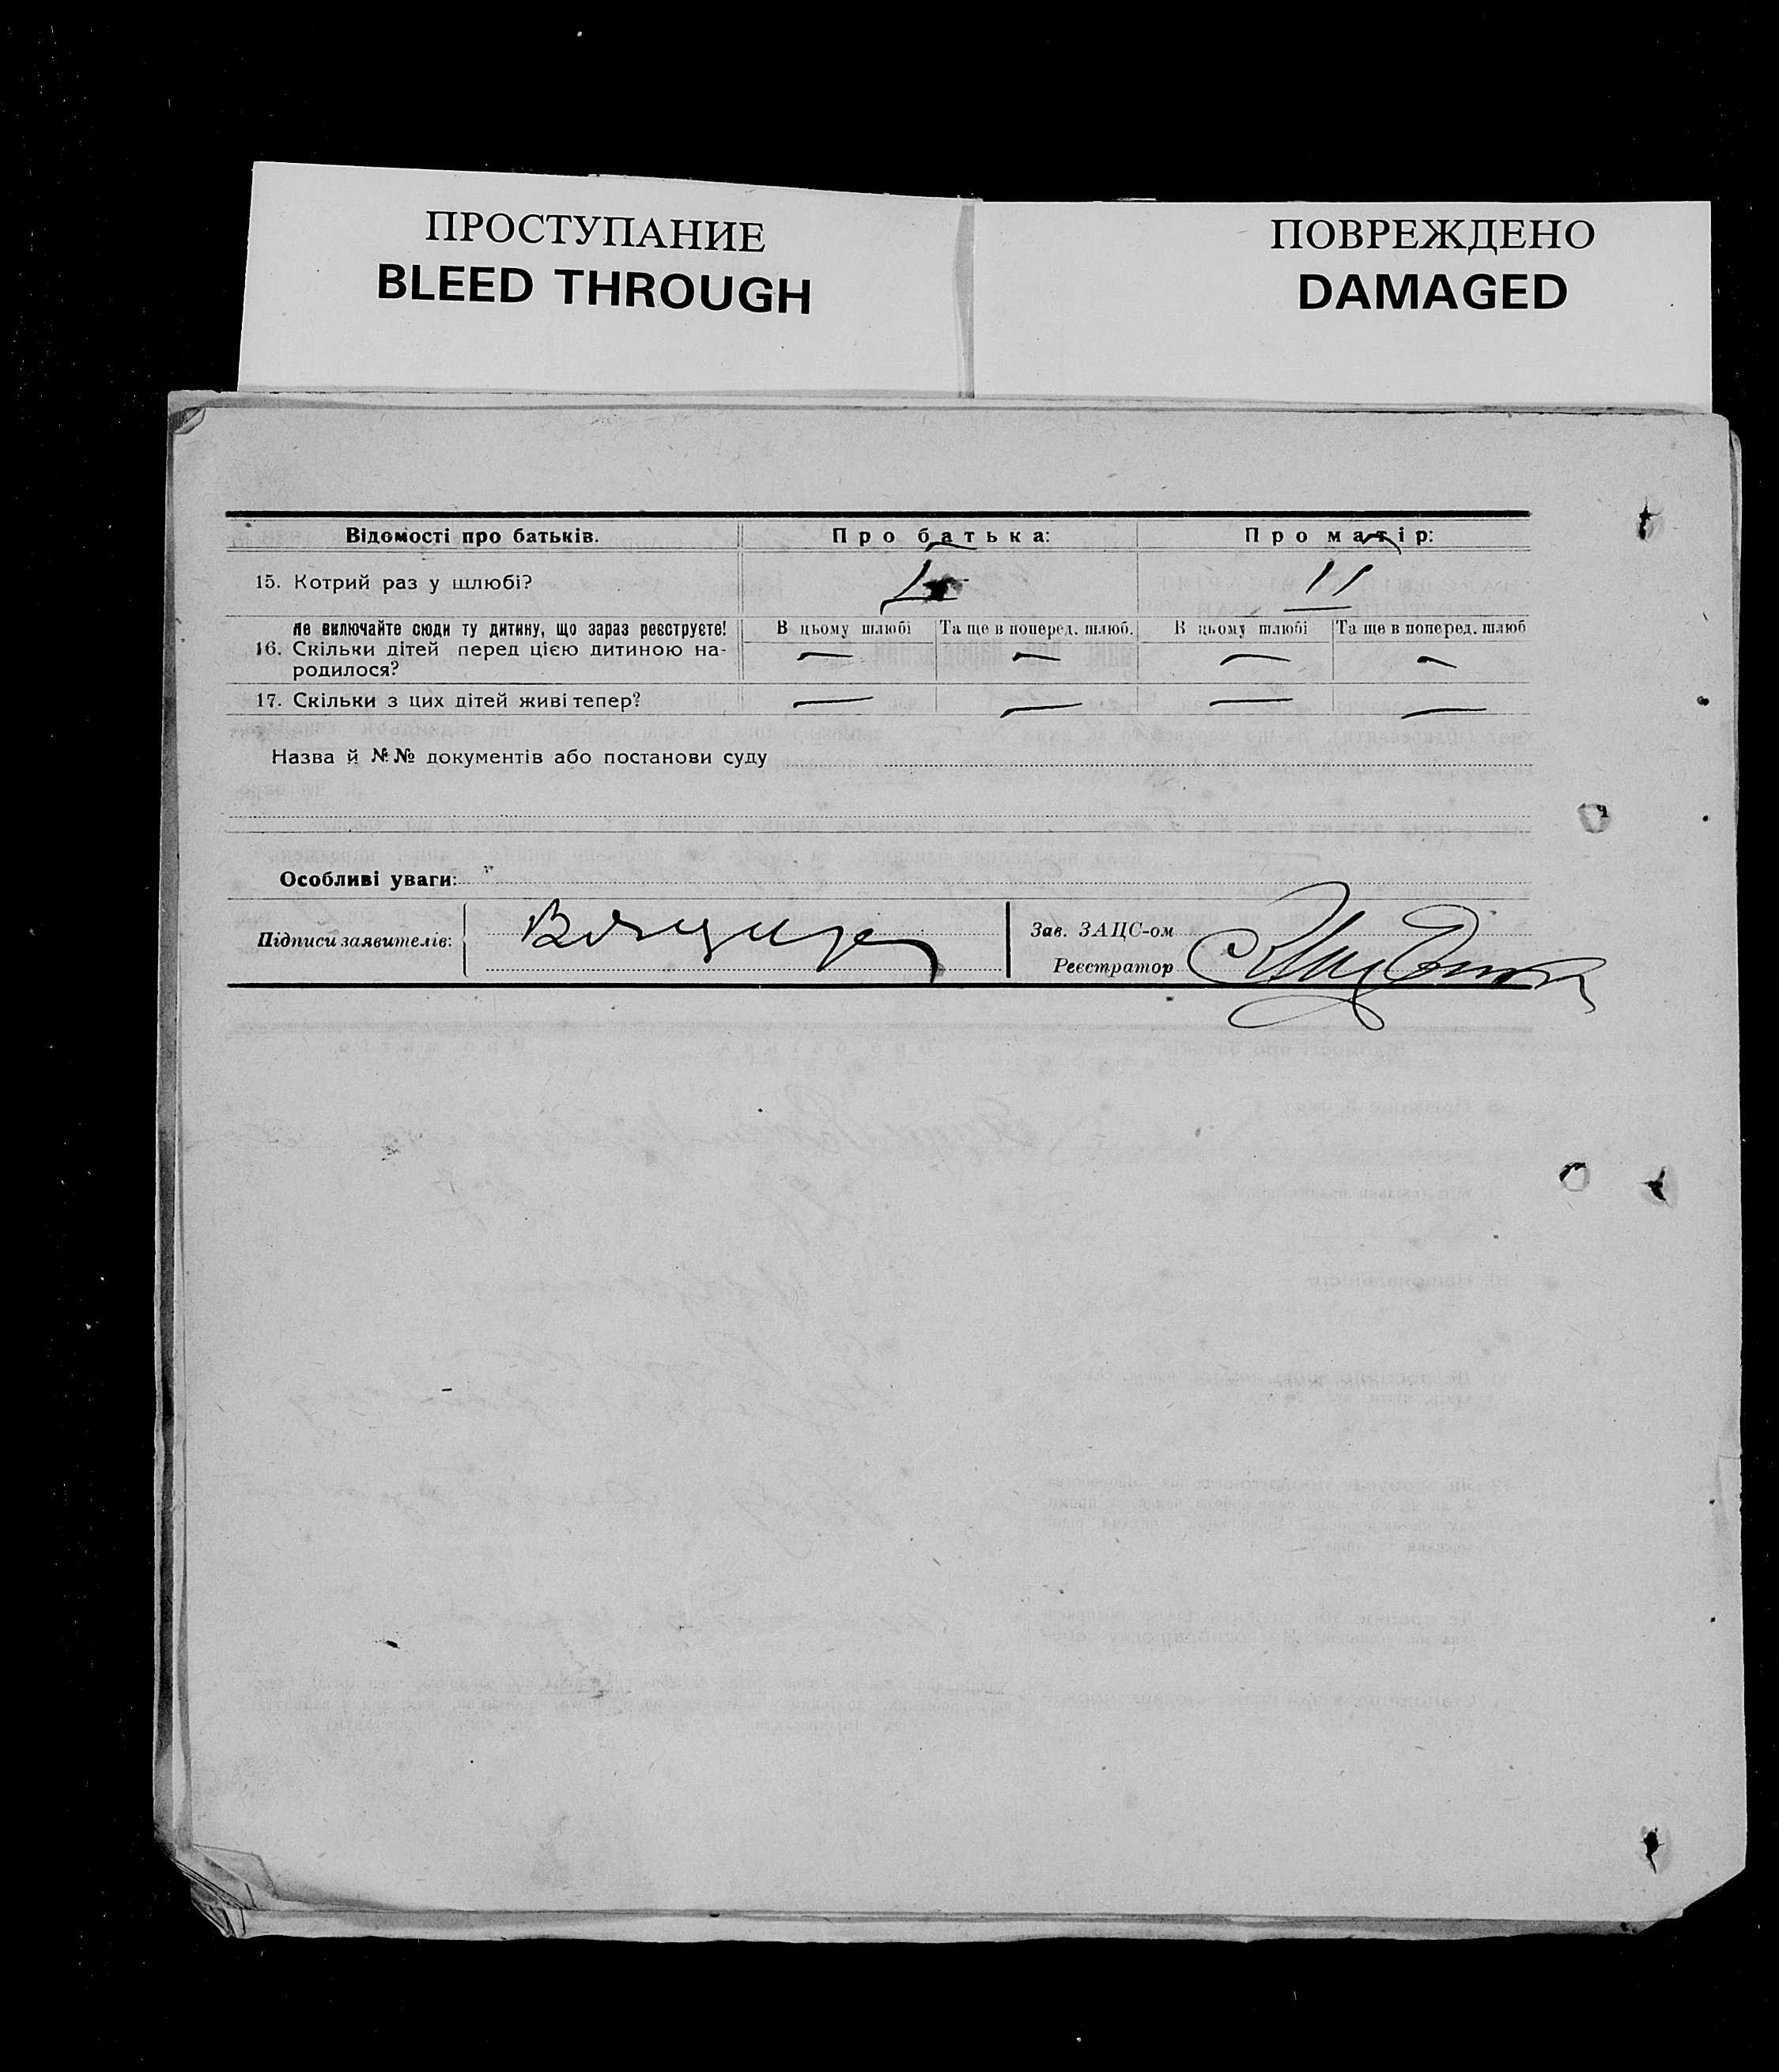 ПРОСТУПАНИЕ
BLEED THROUGH
ПОВРЕЖДЕНО
DAMAGED
Відомості про батьків. Про батька: Про матір:
15. Котрий раз у шлюбі? II
Не включайте сюди ту дитину, що зараз реєструєте! В цьому шлюбі Та ще в поперед. шлюб. В цьому шлюбі Та ще в поперед. шлюб
16. Скільки дітей перед цією дитиною на- — — — —
родилося?
17. Скільки з цих дітей живі тепер? — — — —
Назва й №№ документів або постанови суду
Особливі уваги:
Підписи заявителів:
Зав. ЗАЦС-ом
Реєстратор